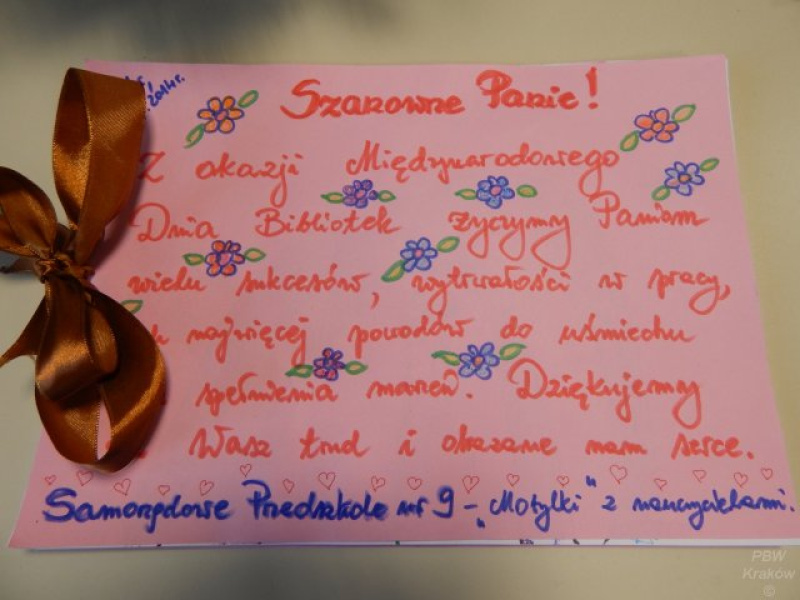 2014r.
Szanowne Panie!
Z okazji Międzynarodowego
Dnia Bibliotek życzymy Paniom
wielu sukcesów, wytrwałości w pracy,
jak najwięcej powodów do uśmiechu
spełnienia marzeń. Dziękujemy
Wasz trud i okazane nam serce.
Samorządowe Przedszkole nr 9 - „Motylki" z nauczycielkami.
PBW
Kraków
©